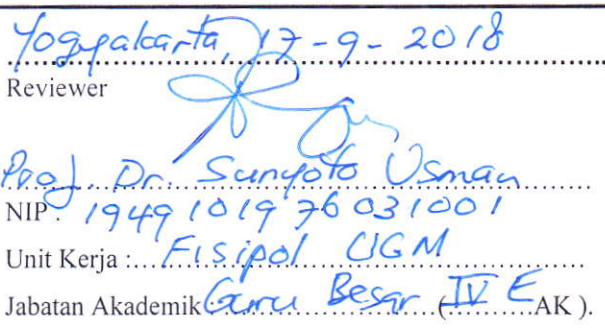 Yogyakarta, 17-9-2018
Reviewer
Prof. Dr. Sunyoto Usman
NIP : 19491019 76 031001
Unit Kerja : Fisipol UGM
Jabatan Akademik Guru Besar (IV E AK ).